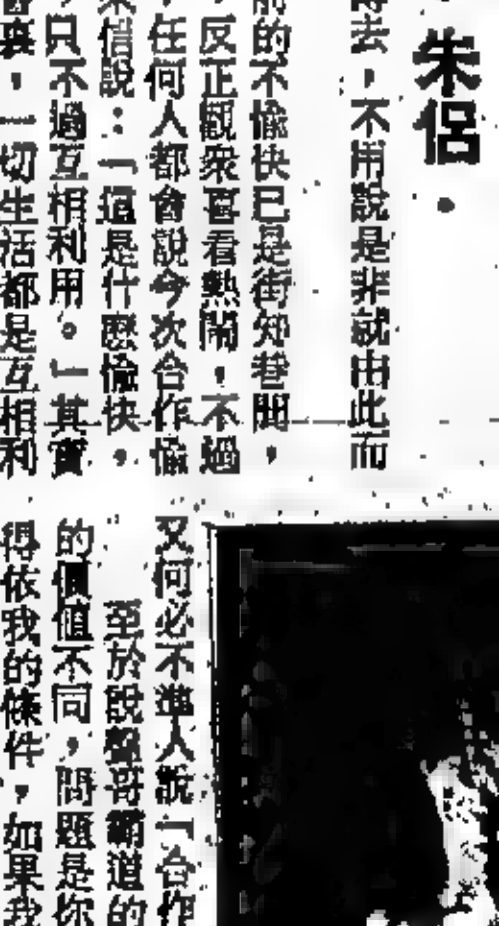 朱侶。
去，不用說是非就由此而
的不愉快已是街知巷聞，
反正觀衆喜看熱鬧，不過
任何人都會說今次合作愉
信說：「這是什麽愉快，
只不過互相利用。」其實
，一切生活都是互相利
又何必不進人說「合作
至於說聲哥霸道的
的價值不同，問題是你
得依我的條件，如果我